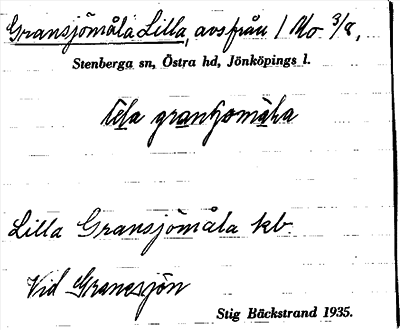 Gransjömåla Lilla, avs från 1 Mo 3/8,
Stenberga sn, Östra hd, Jönköpings l.
Lilla Gransjömåla kb.
Vid Gransjön
Stig Bäckstrand 1935.